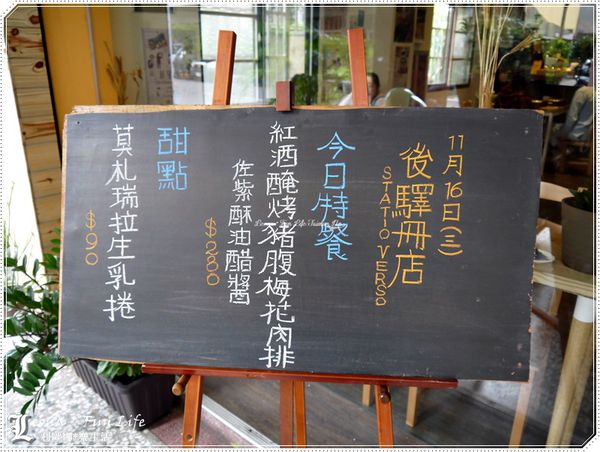 11月16日(三)
後驛冊店
STATIO VERSO
今日特餐
紅酒醃烤豬腹梅花肉排
佐紫酥油醋醬
$280
甜點
莫札瑞拉生乳捲
$90